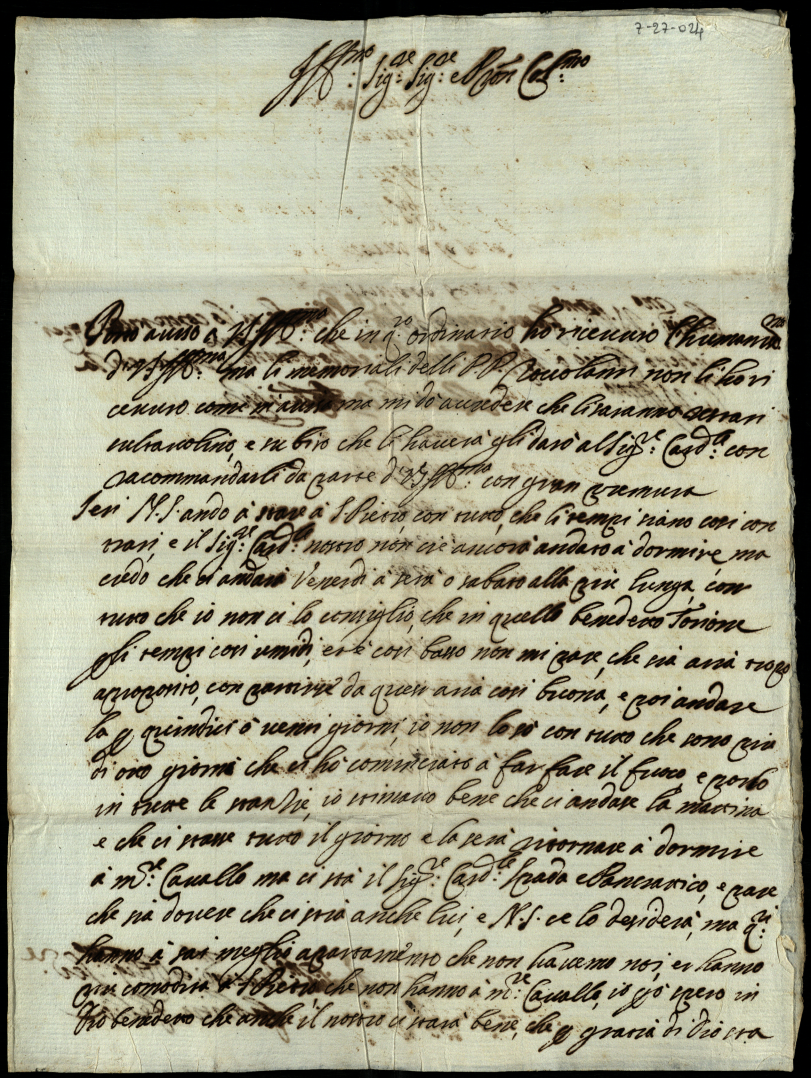 7-27-024
Ill.mo Sig.re Sig.re e Pron Col.mo
Dono auiso a V.S. Ill.ma che in q.to ordinario ho riceuuto l'humaniss.ma
di V.S. Ill.ma ma li memoriali delli PP. Zoccolanti non li ho ri
ceuuto come mi auisa ma mi do a credere che li saranno restati
in, e subito che li hauerà gli darò al Sig.re Card.le con
racommandarli da parte di V.S. Ill.ma con gran premura
Ieri N.S. andò à stare à S. Pietro con tutto, che li tempi siano cosi con
trari, e il Sig.re Card.le nostro non ci è ancora andato à dormire ma
credo che ci andarà Venerdi à sera o sabato alla piu lunga, con
tutto che io non ci lo consiglio, che in quello benedetto Torione
gli tempi cosi umidi, et è cosi basso non mi pare, che sia aria tropo
aproposito, con partirse da quest aria cosi buona, e poi andare
la p quindici ò venti giorni, io non lo so con tutto che sono piu
di otto giorni che ci hò cominciato à far fare il fuoco e porlo
in tutte le stanzie, io stimauo bene che ci andasse la mattina
e che ci stasse tutto il giorno e la sera ritornare à dormire
à m.te Cauallo ma ci stà il Sig.re Card.le Spada e Pancratico, e pare
che sia douere che ci stia anche lui, e N.S. ce lo desidera, ma q.ti
hanno à sai meglio apartamento che non hauemo noi, et hanno
piu comodità à S. Pietro che non hanno à m.te Cauallo, io pò spero in
Dio benedetto che anche il nostro ci starà bene, che p gratia di Dio sta